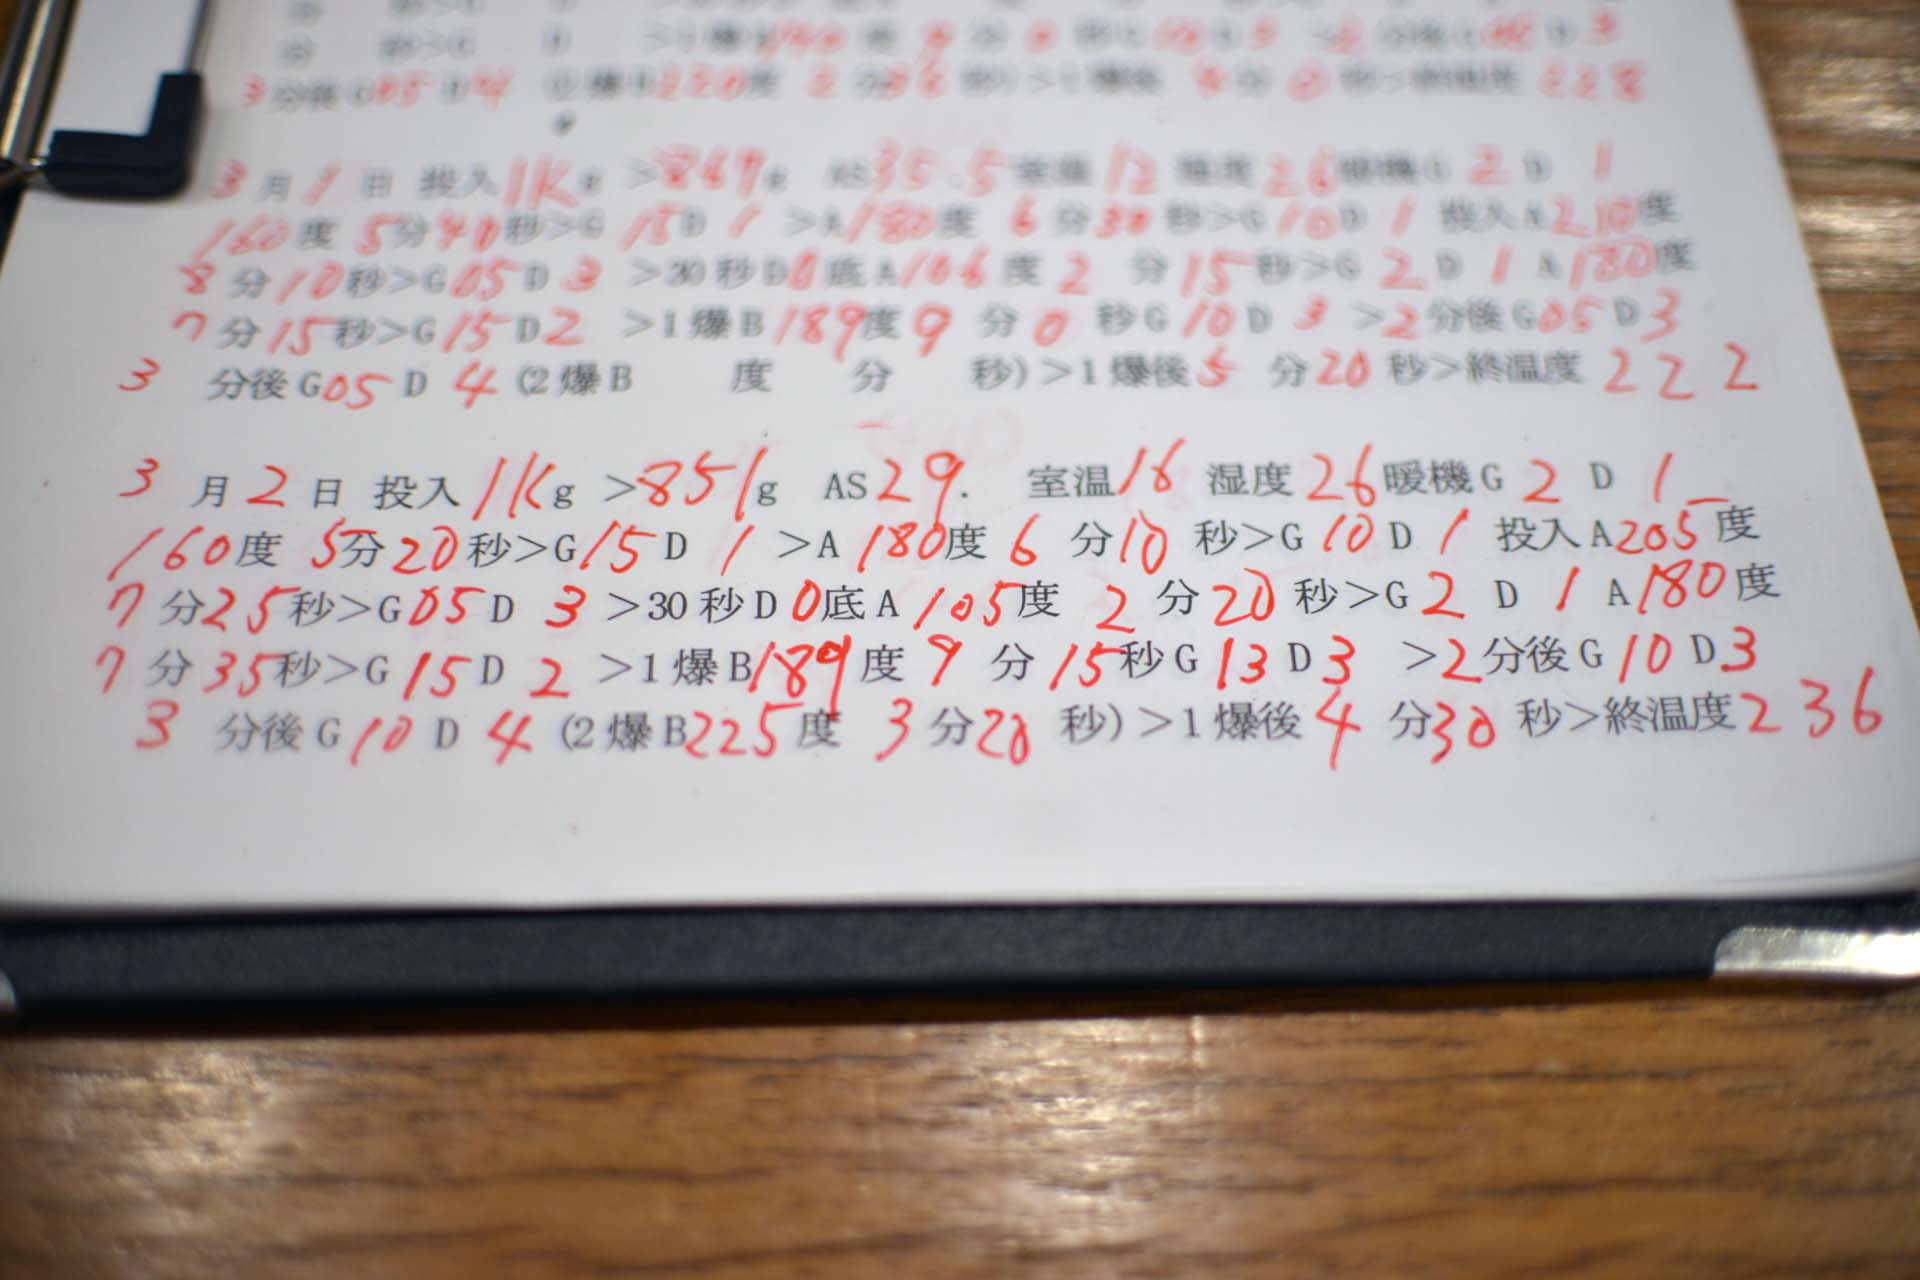 3分後G05 D4 (2爆B220度 2分 秒)>1爆後 4分0秒>終温度228
3月1日 投入1Kg >869g AS35.5 室温12 湿度26暖機G2 D1
160度 5分40秒>G15D1 >A180度 6分30秒>G10D1 投入A210度
8分10秒>G05D3 >30秒D0底A106度 2分15秒>G2 D1 A180度
7分15秒>G15D2 >1爆B189度9分0秒G10D3 >2分後G05D3
3分後G05D4 (2爆B 度 分 秒)>1爆後5分20秒>終温度222
3月2日 投入1Kg >851g AS29. 室温16 湿度26暖機G2 D1
160度 5分20秒>G15D1 >A180度6分10秒>G10D1 投入A205度
7分25秒>G05D3 >30秒D0底A105度 2分20秒>G2 D1 A180度
7分35秒>G15D2 >1爆B189度9分15秒G13D3 >2分後G10D3
3分後G10D4 (2爆B225度 3分20秒)>1爆後4分30秒>終温度236